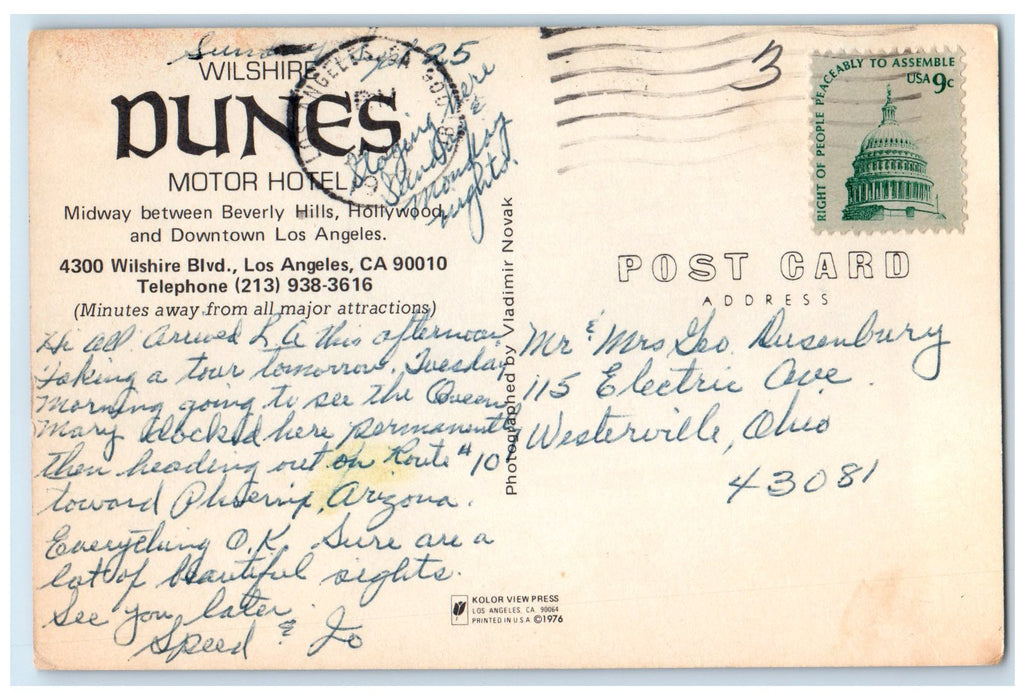 Sunday 25
WILSHIRE
DUNES
MOTOR HOTEL
Midway between Beverly Hills, Hollywood,
and Downtown Los Angeles.
4300 Wilshire Blvd., Los Angeles, CA 90010
Telephone (213) 938-3616
(Minutes away from all major attractions)
Staying here
Sunday &
Monday
nights.
Hi all. Arrived L.A this afternoon
Taking a tour tomorrow. Tuesday
Morning going to see the Queen
Mary docked here permanently
then heading out on Route #10
toward Phoenix, Arizona.
Everything O.K. Sure are a
lot of beautiful sights.
See you later.
Speed & Jo
Photographed by Vladimir Novak
KOLOR VIEW PRESS
LOS ANGELES, CA. 90064
PRINTED IN U.S.A. ©1976
LOS ANGELES, CA 900
3
RIGHT OF PEOPLE PEACEABLY TO ASSEMBLE
USA 9c
POST CARD
ADDRESS
Mr & Mrs Geo. Dusenbury
115 Electric Ave.
Westerville, Ohio
43081